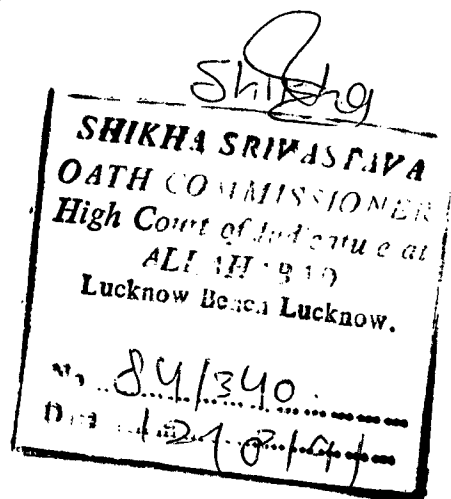 Shikha
SHIKHA SRIVASTAVA
OATH COMMISSIONER
High Court of Judicature at
ALLAHABAD
Lucknow Bench Lucknow.
No 84/340